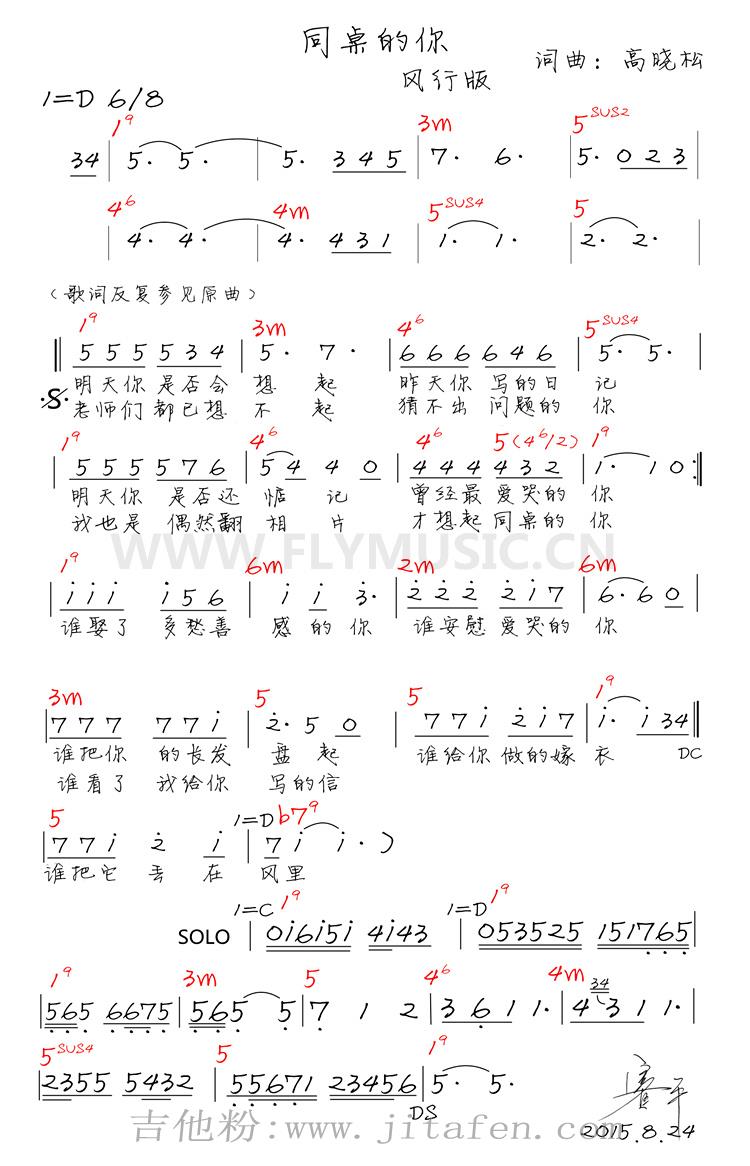 同桌的你
词曲：高晓松
风行版
1=D 6/8
1⁹ 3m 5sus2
34 | 5· 5· | 5· 345 | 7· 6· | 5· 023
4⁶ 4m 5sus4 5
| 4· 4· | 4· 431 | 1· 1· | 2· 2· |
（歌词反复参见原曲）
1⁹ 3m 4⁶ 5sus4
‖ 555 534 | 5· 7· | 666 646 | 5· 5· |
明天你 是否会 想 起 昨天你 写的日 记
老师们 都已想 不 起 猜不出 问题的 你
1⁹ 4⁶ 4⁶ 5(4⁶/2) 1⁹
| 555 576 | 5 4 4 0 | 444 432 | 1· 10 :‖
明天你 是否还 惦 记 曾经最 爱哭的 你
我也是 偶然翻 相 片 才想起 同桌的 你
WWW.FLYMUSIC.CN
1⁹ 6m 2m 6m
| i i i i 5 6 | i i 3· | 2 2 2 2 i 7 | 6· 6 0 |
谁娶了 多愁善 感的你 谁安慰 爱哭的 你
3m 5 5 1⁹
| 7 7 7 7 7 i | 2· 5 0 | 7 7 i 2 i 7 | i· i 34 ‖
谁把你 的长发 盘起 谁给你 做的嫁 衣 DC
谁看了 我给你 写的信
5 1=D b7⁹
| 7 7 i 2 i | 7 i i· )
谁把它 丢 在 风里
1=C 1⁹ 1=D 1⁹
SOLO | 0i6i5i 4i43 | 053525 151765 |
1⁹ 3m 5 4⁶ 4m
| 565 6675 | 565 5 | 7 1 2 | 3 6 1 1· | 34 4 3 1 1· |
5sus4 5 1⁹
| 2355 5432 | 55671 23456 | 5· 5· |
DS
2015.8.24
吉他粉:www.jitafen.com